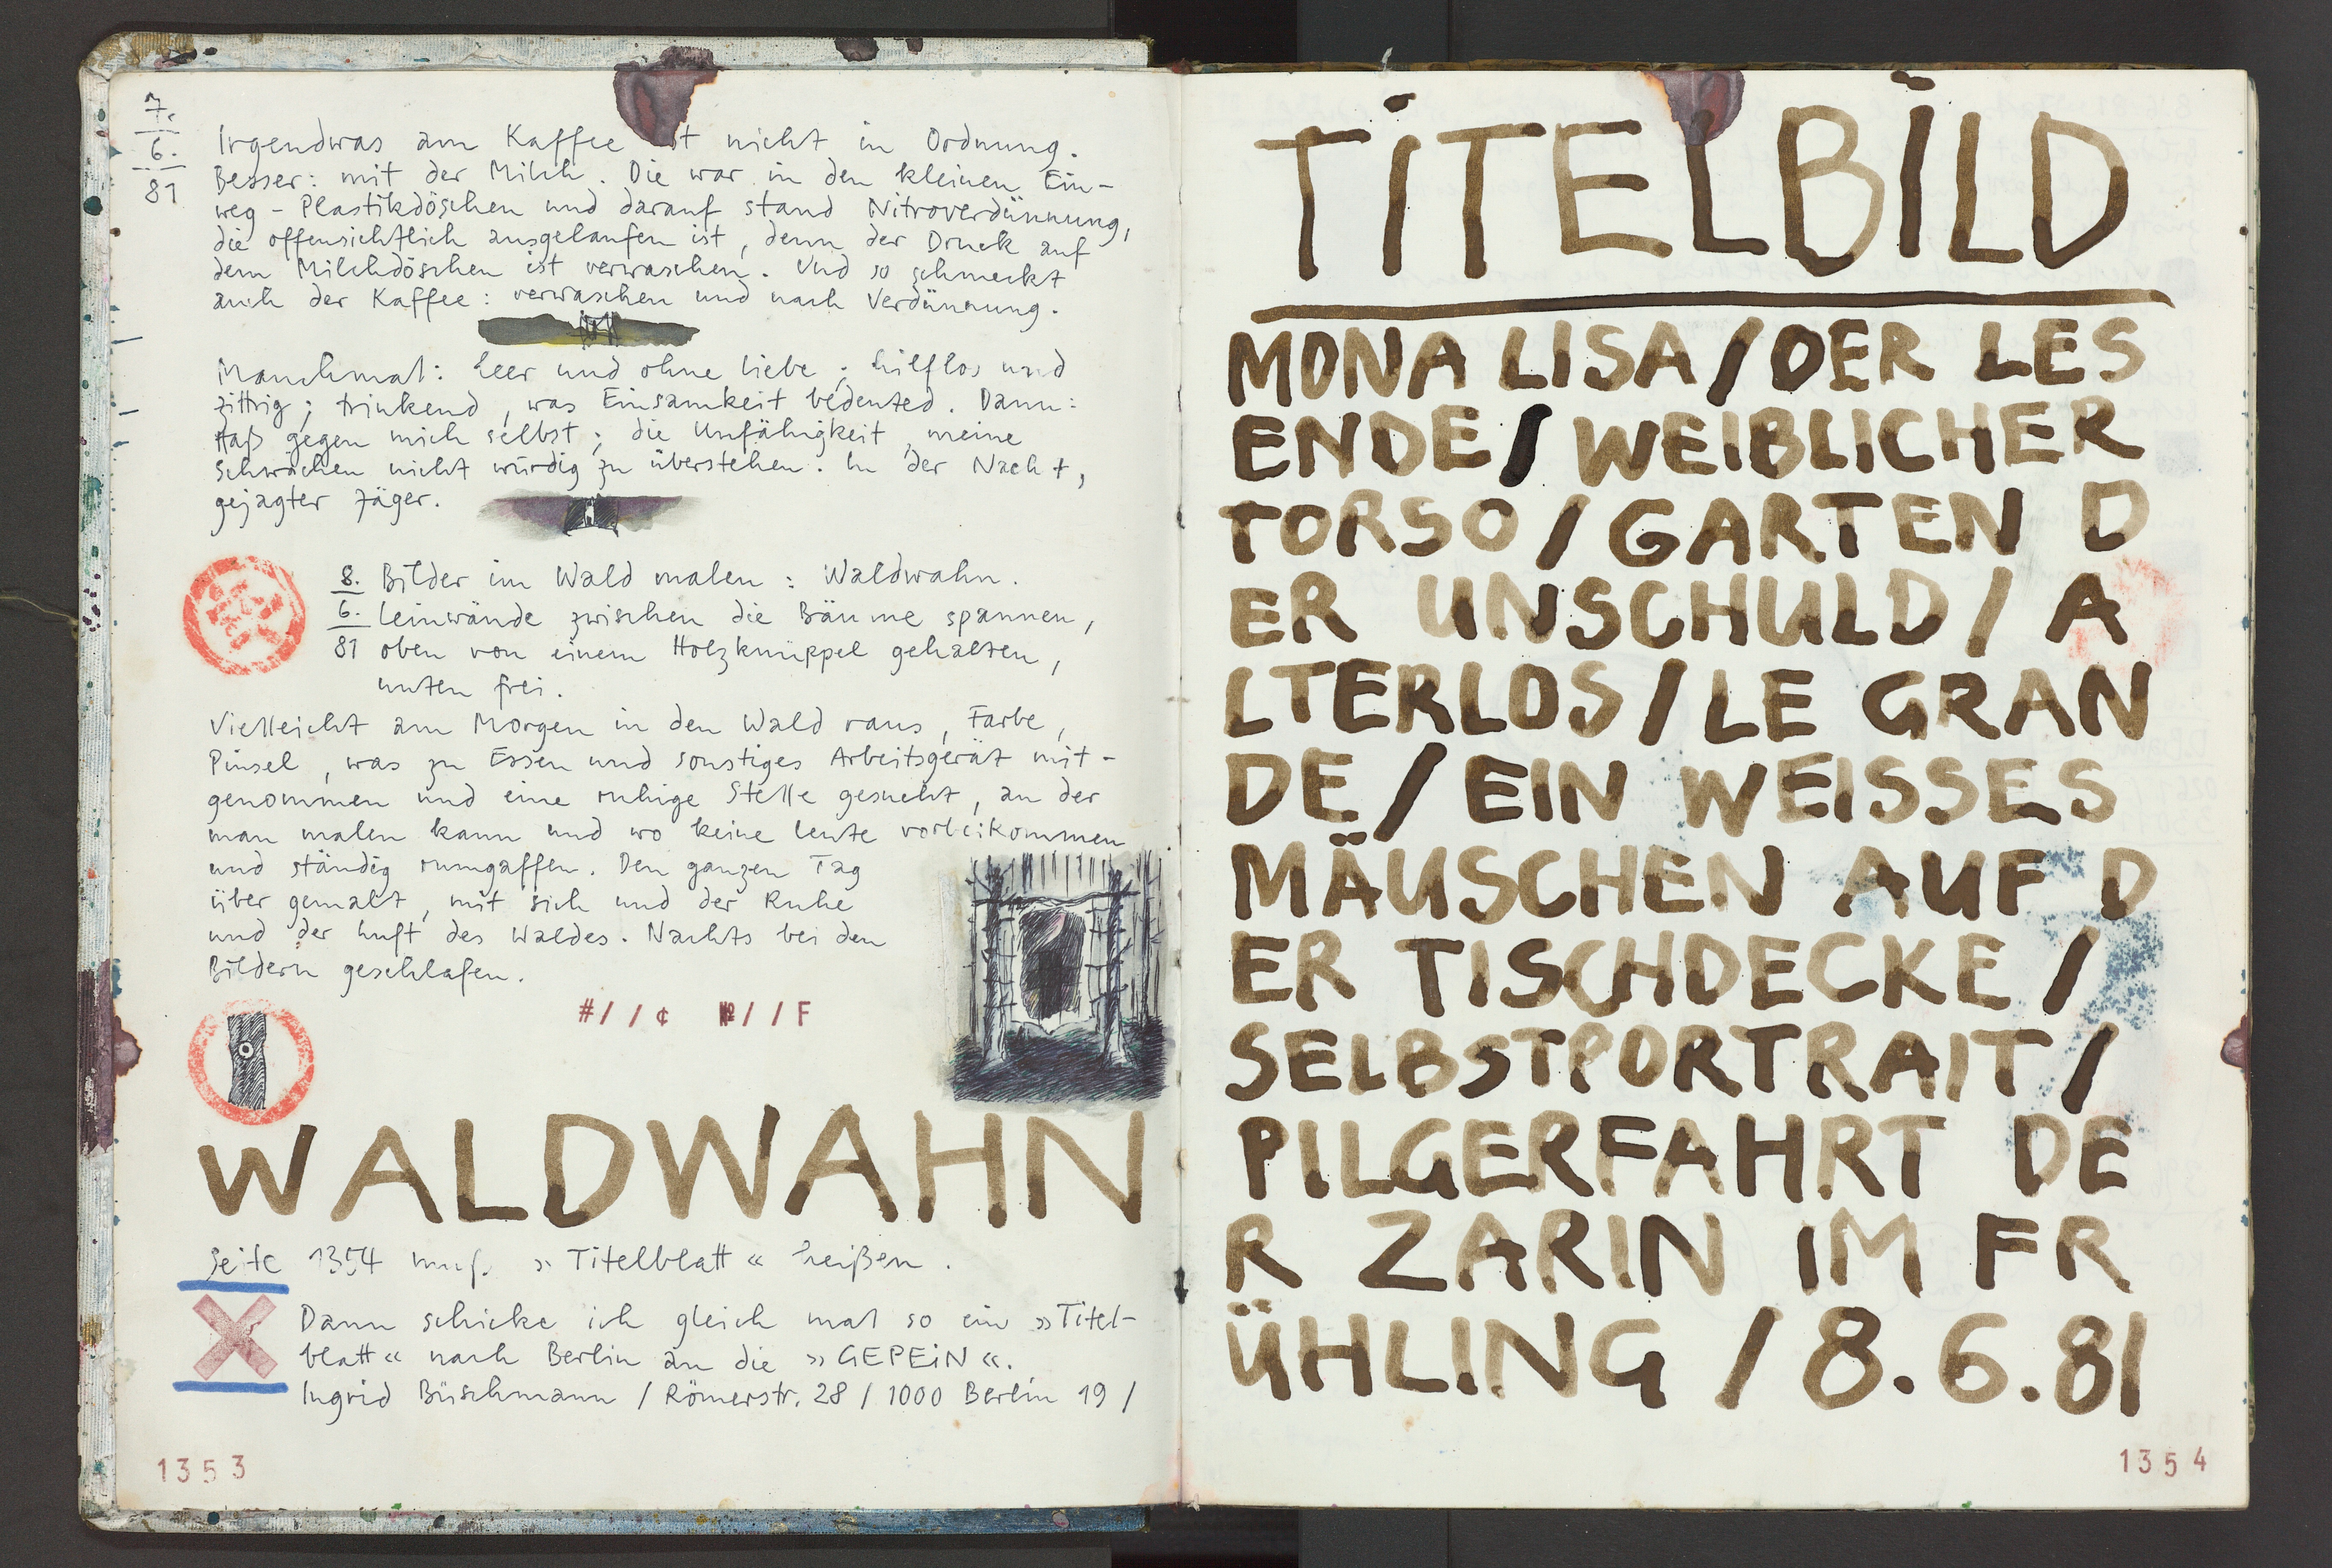 7.
6.
81
Irgendwas am Kaffee ist nicht in Ordnung.
Besser: mit der Milch. Die war in den kleinen Ein-
weg-Plastikdöschen und darauf stand Nitroverdünnung,
die offensichtlich ausgelaufen ist, denn der Druck auf
dem Milchdöschen ist verwaschen. Und so schmeckt
auch der Kaffee: verwaschen und nach Verdünnung.
Manchmal: leer und ohne Liebe; hilflos und
zittrig; trinkend, was Einsamkeit bedeuted. Dann:
Haß gegen mich selbst; die Unfähigkeit, meine
Schwächen nicht würdig zu überstehen. In der Nacht,
gejagter Jäger.
8.
6.
81
Bilder im Wald malen: Waldwahn.
Leinwände zwischen die Bäume spannen,
oben von einem Holzknüppel gehalten,
unten frei.
Vielleicht am Morgen in den Wald raus, Farbe,
Pinsel, was zu Essen und sonstiges Arbeitsgerät mit-
genommen und eine ruhige Stelle gesucht, an der
man malen kann und wo keine Leute vorbeikommen
und ständig rumgaffen. Den ganzen Tag
über gemalt, mit sich und der Ruhe
und der Luft des Waldes. Nachts bei den
Bildern geschlafen.
#//¢ №//F
WALDWAHN
Seite 1354 muß »Titelblatt« heißen.
Dann schicke ich gleich mal so ein »Titel-
blatt« nach Berlin an die »GEPEiN«.
Ingrid Büschmann / Römerstr. 28 / 1000 Berlin 19 /
1353
TiTELBiLD
MONA LISA/DER LES
ENDE/WEIBLICHER
TORSO/GARTEN D
ER UNSCHULD/A
LTERLOS/LE GRAN
DE/EIN WEISSES
MÄUSCHEN AUF D
ER TISCHDECKE/
SELBSTPORTRAIT/
PILGERFAHRT DE
R ZARIN IM FR
ÜHLING/8.6.81
1354